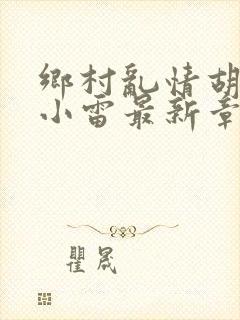 鄉村亂情胡
小雷最新章
瞿晟